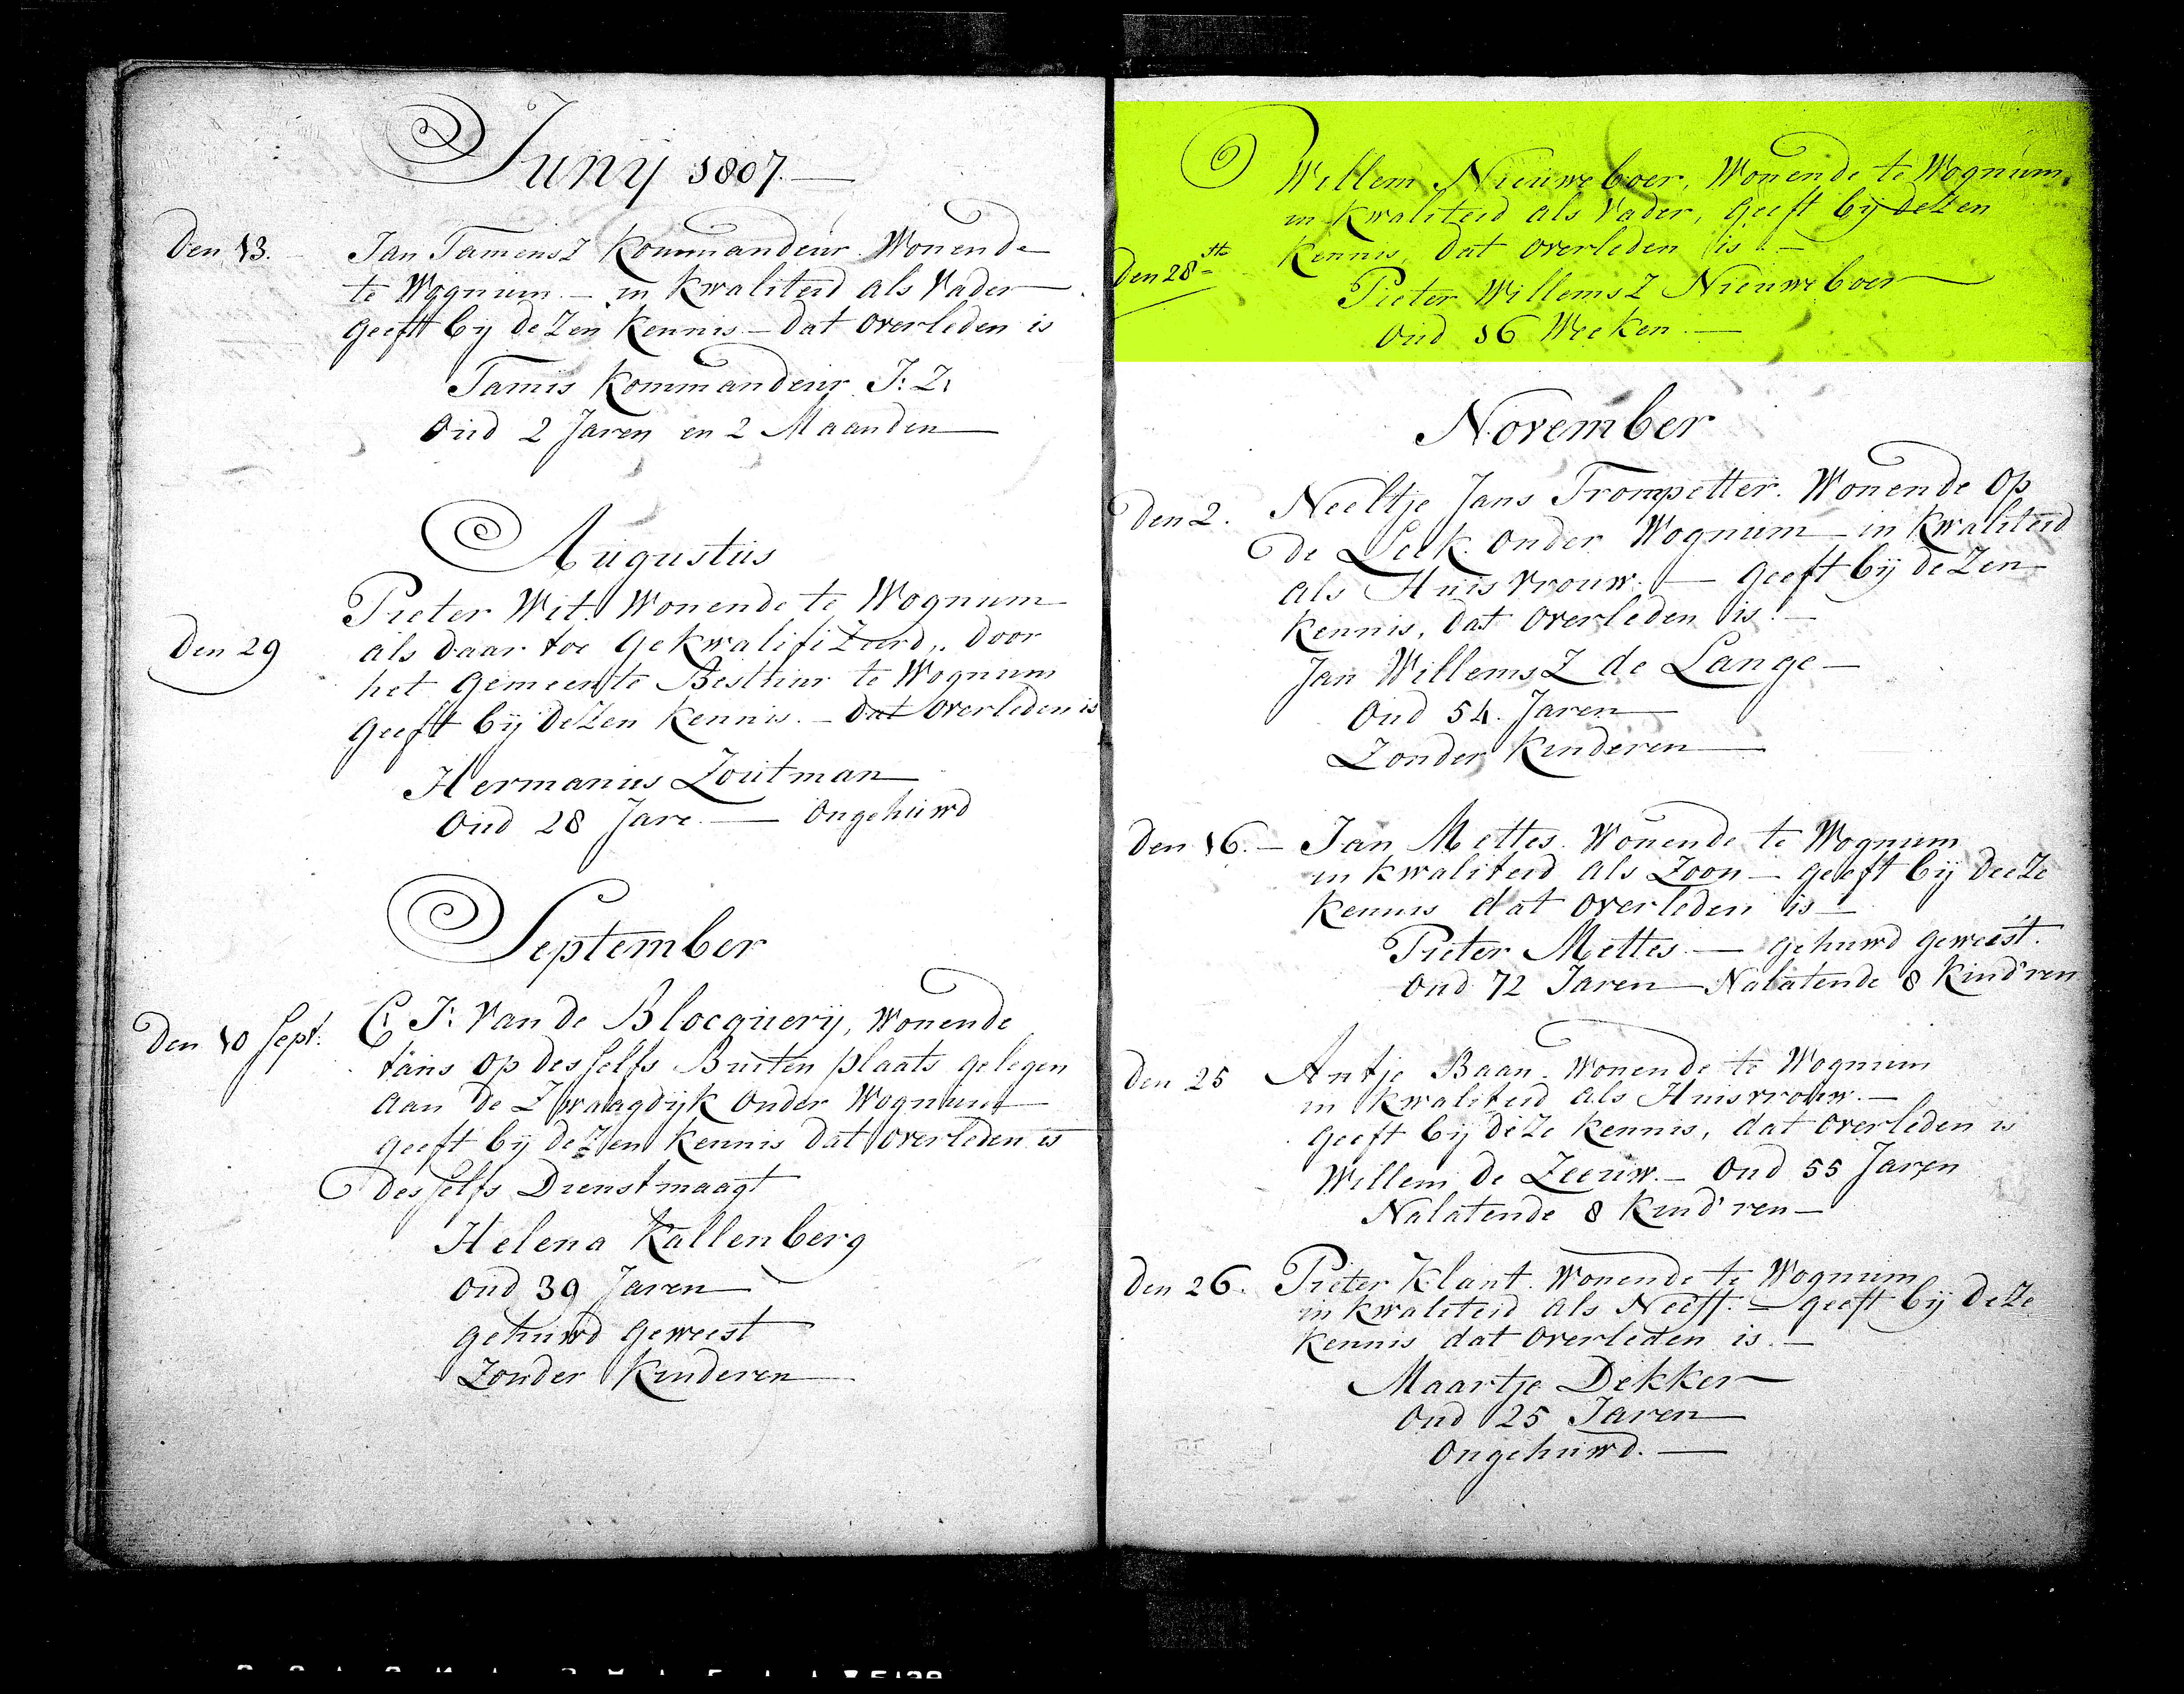 Junij 1807.—
Den 13. Jan Tamensz Kommandeur. Wonende
te Wognum.— in kwaliteid als Vader—
geeft bij dezen kennis— dat overleden is
Tamis Kommandeur J: Z:
Oud 2 Jaren en 2 Maanden—
Augustus
Pieter Wit. Wonende te Wognum—
Den 29 als daar toe gekwalifizeerd,, door
het gemeente Bestuur te Wognum
geeft bij dezen kennis.— dat overleden is
Hermanus Zoutman—
Oud 28 Jare.— ongehuwd
September
Den 10 Sept. C: J: Van de Blocquery, wonende
tans op desselfs Buiten plaats gelegen
aan de Zwaagdijk onder Wognum—
geeft bij dezen kennis dat overleden is
desselfs Dienstmaagt
Helena Kallenberg
oud 39 Jaren—
gehuwd geweest
Zonder Kinderen—
Willem Nieuweboer, Wonende te Wognum,
in kwaliteid als Vader, geeft bij dezen
Den 28ste kennis, dat overleden is.—
Pieter Willemsz Nieuweboer—
Oud 16 Weeken.—
November
Den 2. Neeltje Jans Trompetter. Wonende op
de Leek. onder Wognum— in kwaliteid
als Huisvrouw.— geeft bij dezen
kennis, dat overleden is.—
Jan Willemsz de Lange—
Oud 54. Jaren—
Zonder Kinderen—
Den 16.— Jan Mettes. Wonende te Wognum
in kwaliteid als Zoon— geeft bij deeze
kennis dat overleden is—
Pieter Mettes.— gehuwd geweest.
Oud 72 Jaren— Nalatende 8 Kind'ren
Den 25 Antje Baan. Wonende te Wognum
in kwaliteid als Huisvrouw.—
geeft bij deze kennis, dat overleden is
Willem de Zeeuw.— Oud 55 Jaren
Nalatende 8 Kind'ren—
Den 26. Pieter Klant. Wonende te Wognum
in kwaliteid als Neeff.— geeft bij deze
kennis dat overleden is.—
Maartje Dekker—
Oud 25 Jaren—
Ongehuwd.—